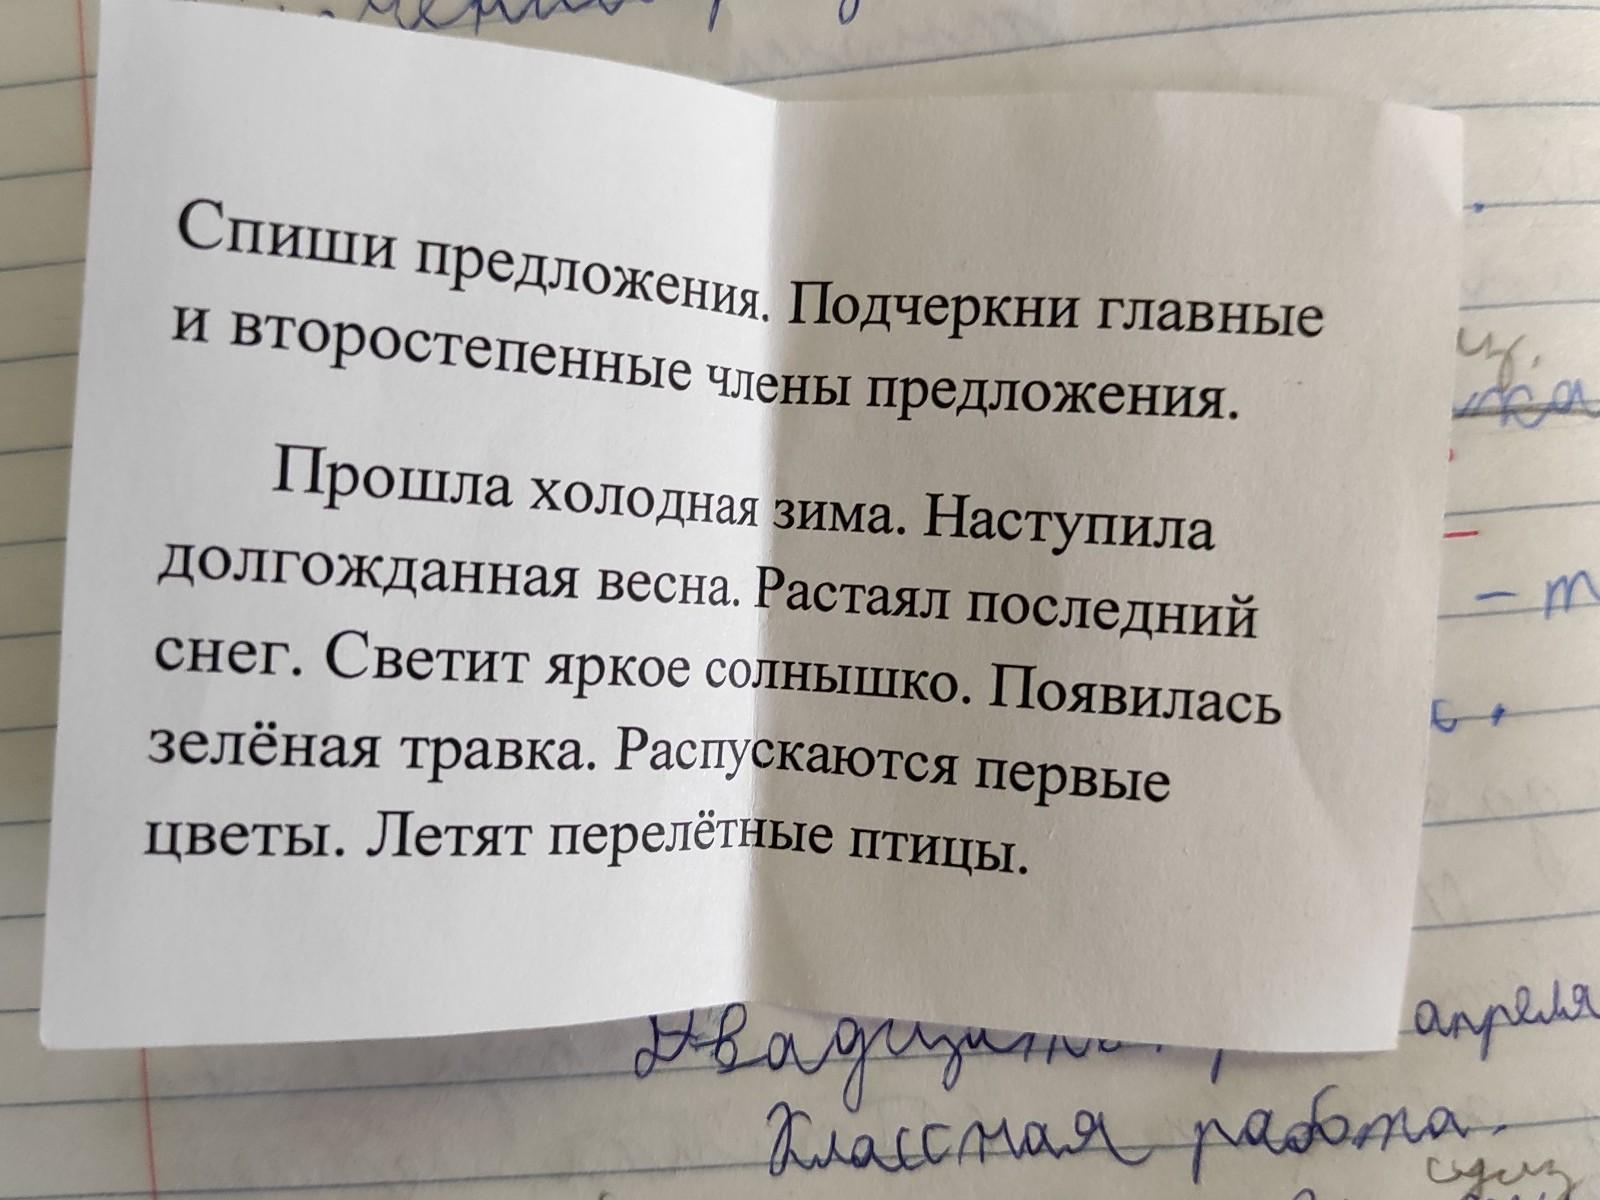 Спиши предложения. Подчеркни главные
и второстепенные члены предложения.
Прошла холодная зима. Наступила
долгожданная весна. Растаял последний
снег. Светит яркое солнышко. Появилась
зелёная травка. Распускаются первые
цветы. Летят перелётные птицы.
апреля
Классная работа.